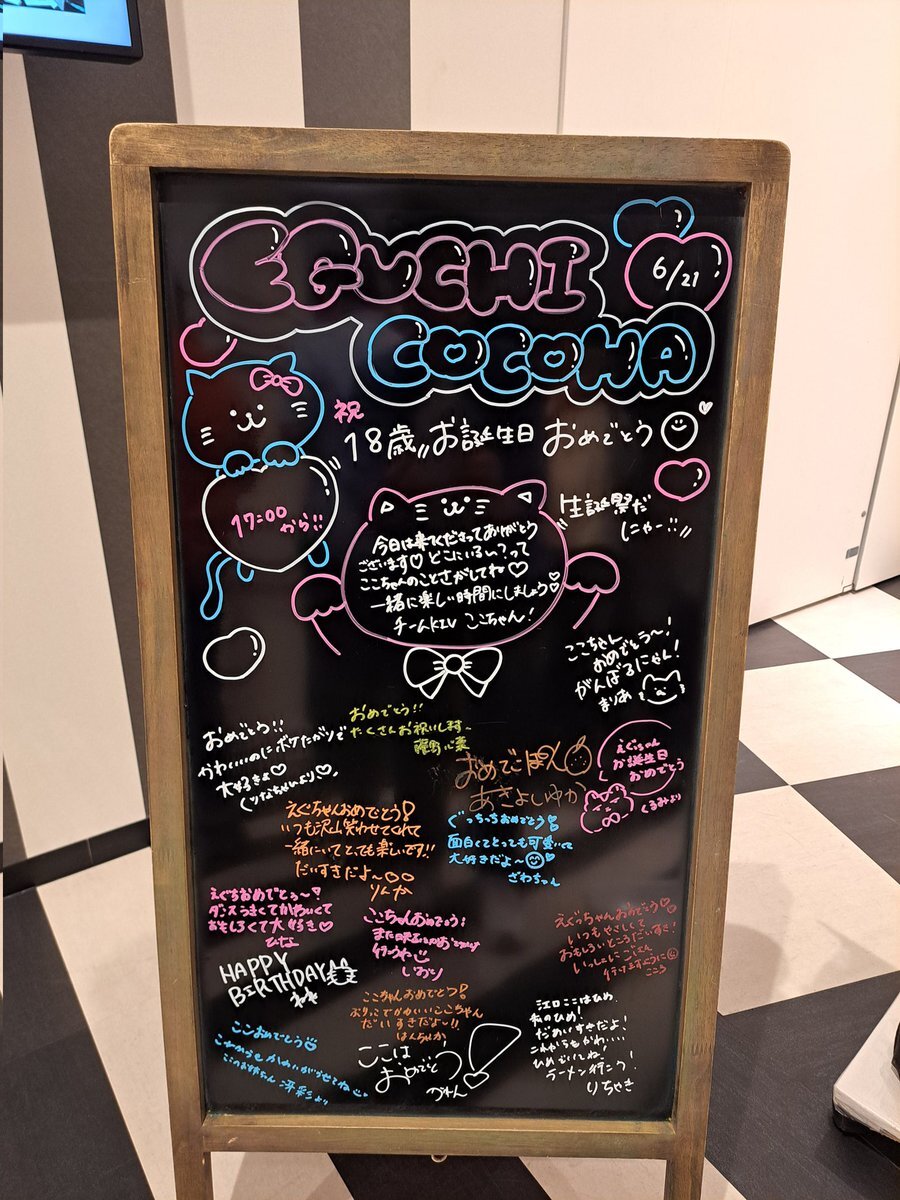 EGUCHI
COCOHA
6/21
祝
18歳 お誕生日 おめでとう
17:00
から!!
生誕祭だ
にゃー!!
今日は来てくださってありがとう
ございます♡ どこにいるい?って
ここちゃんのことさがしてね♡
一緒に楽しい時間にしましょう♡
チームKIV ここちゃん!
ここちゃん
おめでとう〜!
がんばるにゃん!
まりあ
おめでとう!!
かわいいのにボケたがりで
大好きよ♡
おめでとう!!
たくさんお祝いします
おめでこぽん
あきよしゆか
えぐちゃん
お誕生日
おめでとう
くるみより
えぐちゃんおめでとう!
いつも沢山笑わせてくれて
一緒にいてとっても楽しいです!!
だいすきだよ〜♡♡
りんか
ぐっちっちおめでとう!
面白くてとっても可愛いくて
大好きだよ〜
ざわちゃん
えぐちおめでとぅ〜?
ダンスうまくてかわいくて
おもしろくて大好き♡
ひな
ここちゃんおめでとう!
しおり
えぐっちゃんおめでとう♡♡
いつもやさしくて
おもしろいところだいすき!
いっしょにごはん
行けますように
こころ
HAPPY
BIRTHDAY
ここちゃんおめでとう!
ぶりっこでかわいいここちゃん
だいすきだよー!!
はんちゅか
江口ここはひめ、
私のひめ!
だあいすきだよ!
これからもかわいい
ひめでいてね!
ラーメン行こう!
りちゃき
ここおめでとう
ここのお姉ちゃん 冴彩より
ここは
おめでとう!
づんん